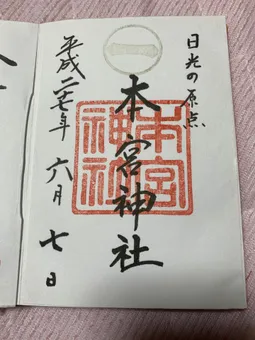 日光の原点
本宮神社
本宮
神社
平成二七年六月七日